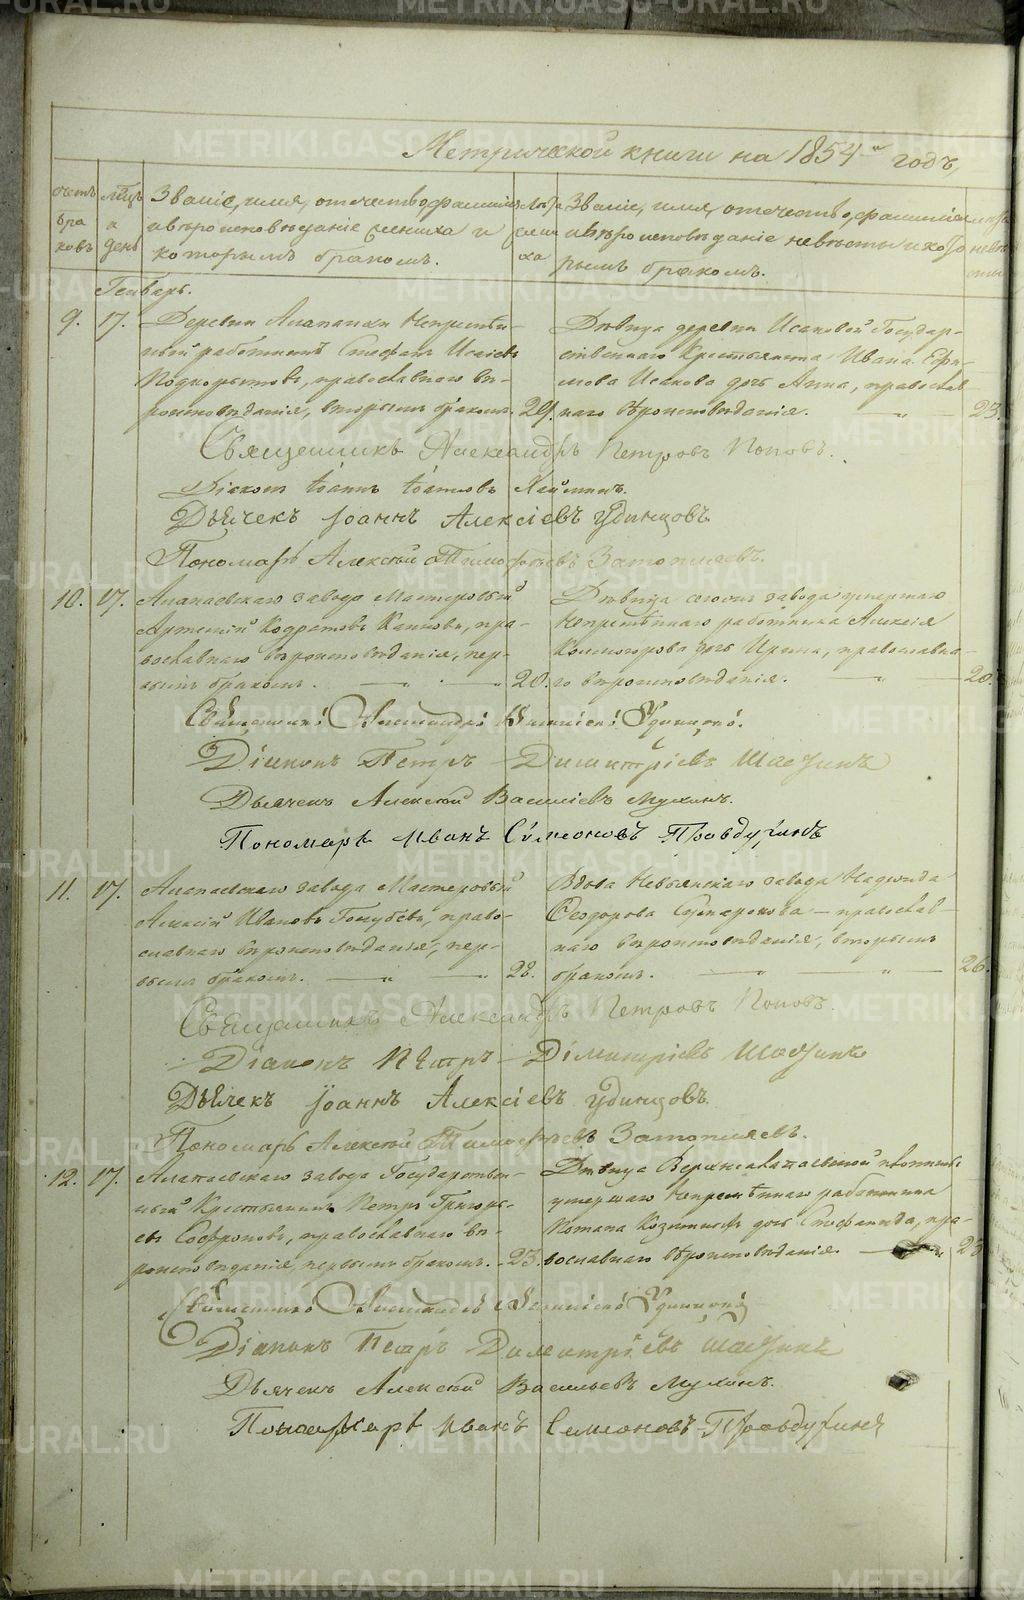 Метрической книги на 1854й годъ,
Счетъ браковъ
Мцъ и день
Званіе, имя, отечество, фамилія
и вѣроисповѣданіе жениха и
которымъ бракомъ.
Лѣта жениха
Званіе, имя, отечество, фамилія
и вѣроисповѣданіе невѣсты и кото
рымъ бракомъ.
Лѣта невѣсты
Генварь.
9. 17. Деревни Алапаихи Непремѣн-
ный работникъ Стефанъ Исаіевъ
Подкорытовъ, православнаго вѣ-
роисповѣданія, вторымъ бракомъ. 29.
Дѣвица деревни Исаковой Государ-
ственнаго Крестьянина Ивана Ефи-
мова Исакова дочь Анна, православ-
наго вѣроисповѣданія. 23.
Священникъ Александръ Петровъ Поповъ.
Діаконъ Іоаннъ Іоанновъ
Дьячекъ Іоаннъ Алексіевъ Удинцовъ
Пономарь Алексѣй Тимофѣевъ Затопляевъ.
10. 17. Алапаевскаго завода Мастеровый
Артемій Кодратовъ пра-
вославнаго вѣроисповѣданія, пер-
вымъ бракомъ. 20.
Дѣвица завода умершаго
Непремѣннаго работника Алексія
дочь Ирина, православна-
го вѣроисповѣданія. 20.
Священникъ Александръ Удинцовъ.
Діаконъ Петръ Димитріевъ
Дьячекъ Алексѣй Василіевъ Мухинъ.
Пономарь Иванъ Симеоновъ Правдухинъ
11. 17. Алапаевскаго завода Мастеровый
Алексій Ивановъ Голубевъ, право-
славнаго вѣроисповѣданія, пер-
вымъ бракомъ. 22.
Вдова Невьянскаго завода Надежда
Ѳеодорова православ-
наго вѣроисповѣданія, вторымъ
бракомъ. 26.
Священникъ Александръ Петровъ Поповъ
Діаконъ Петръ Димитріевъ
Дьячекъ Іоаннъ Алексіевъ Удинцовъ
Пономарь Алексѣй Тимофѣевъ Затопляевъ.
12. 17. Алапаевскаго завода Государствен-
ный Крестьянинъ Петръ Григорь-
евъ Софроновъ, православнаго вѣ-
роисповѣданія, первымъ бракомъ. 23.
Дѣвица
умершаго Непремѣннаго работника
Потапа дочь Стефанида, пра-
вославнаго вѣроисповѣданія. 23
Священникъ Александръ Удинцовъ
Діаконъ Петръ Димитріевъ
Дьячекъ Алексѣй Васильевъ Мухинъ.
Пономарь Иванъ Симеоновъ Правдухинъ
METRIKI.GASO-URAL.RU